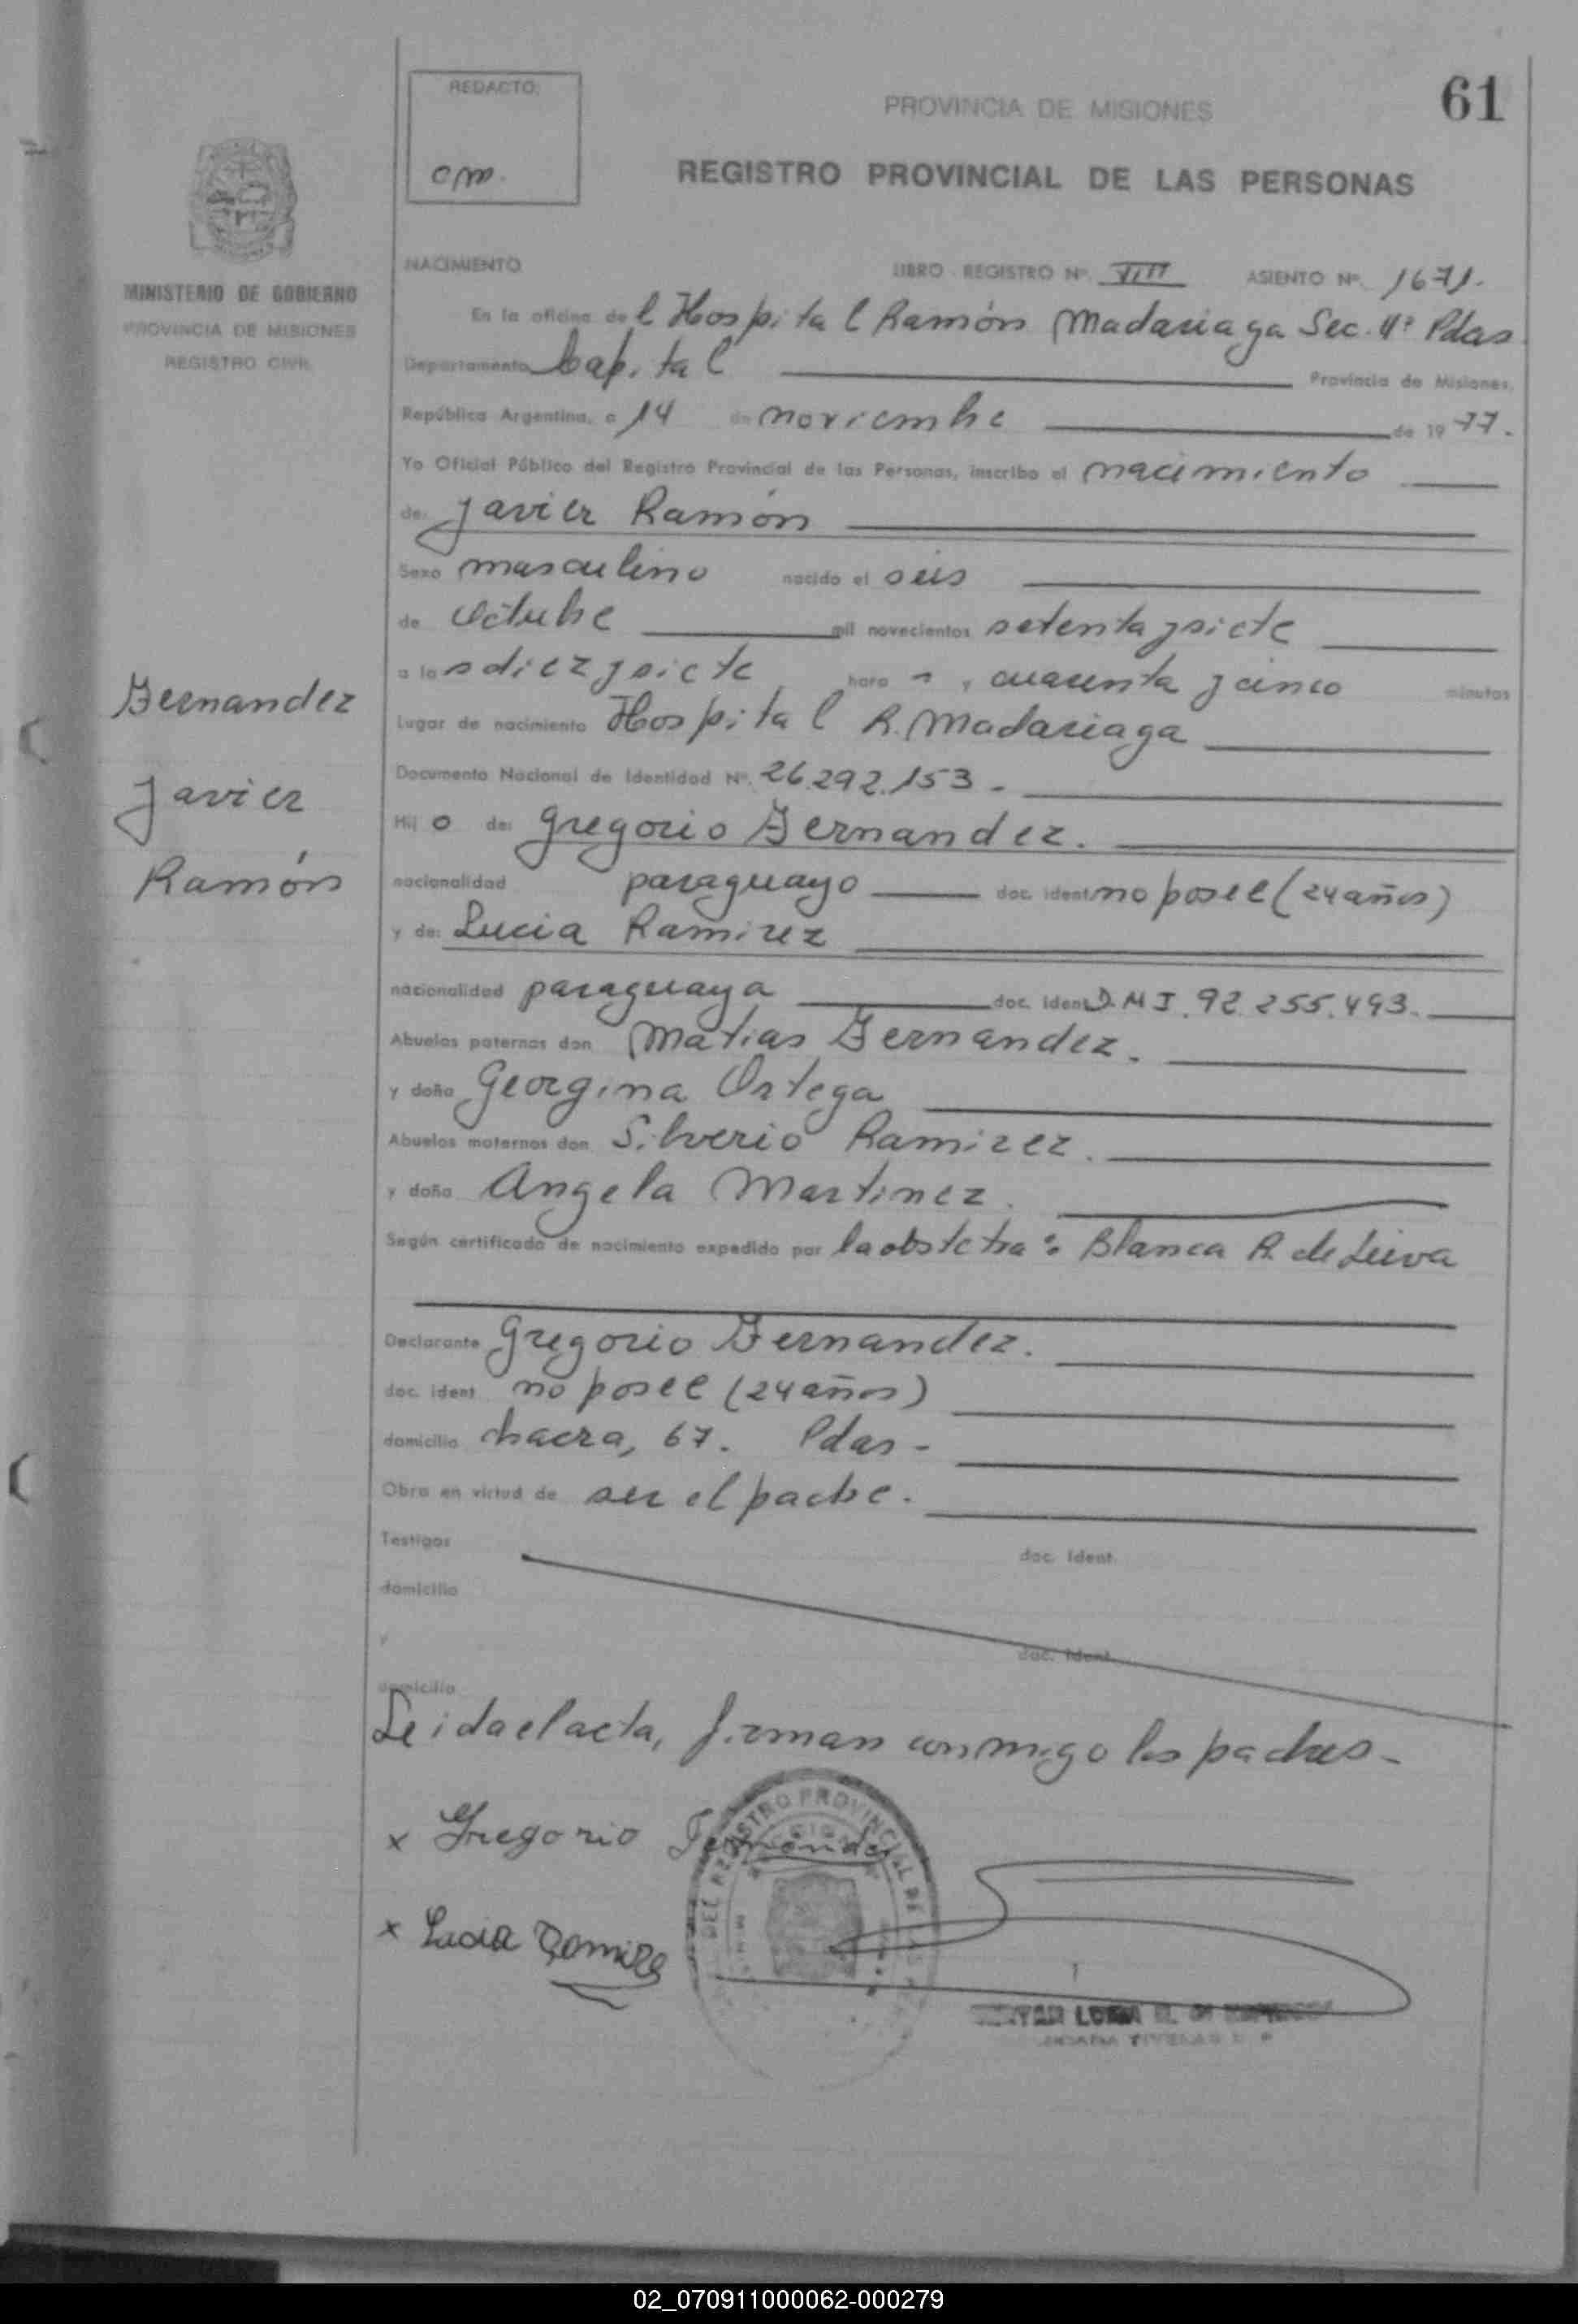 61
REDACTO:
PROVINCIA DE MISIONES
om.
REGISTRO PROVINCIAL DE LAS PERSONAS
MINISTERIO DE GOBIERNO
PROVINCIA DE MISIONES
REGISTRO CIVIL
NACIMIENTO LIBRO REGISTRO Nº. VIII ASIENTO Nº. 1671.
En la oficina del Hospital Ramón Madariaga Sec. 4ª Pdas
Departamento Capital Provincia de Misiones,
República Argentina, a 14 de noviembre de 1977.
Yo Oficial Público del Registro Provincial de las Personas, inscribo el nacimiento
de: Javier Ramón
Sexo masculino nacido el seis
de Octubre mil novecientos setenta y siete
a las diez y siete hora s, y cuarenta y cinco minutos
Lugar de nacimiento Hospital R. Madariaga
Documento Nacional de Identidad Nº. 26.292.153-
Hijo de: Gregorio Fernandez.
nacionalidad paraguayo doc. ident. no posee (24 años)
y de: Lucia Ramirez
nacionalidad paraguaya doc. ident. D.N I. 92.255.493.
Abuelos paternos don Matias Fernandez.
y doña Georgina Ortega
Abuelos maternos don Silverio Ramirez.
y doña Angela Martinez.
Según certificado de nacimiento expedido por la obstetra: Blanca R. de Leiva
Declarante Gregorio Fernandez.
doc. ident. no posee (24 años)
domicilio chacra, 67. Pdas-
Obra en virtud de ser el padre.
Testigos doc. ident.
domicilio
y doc. ident.
domicilio
Leida el acta, firman conmigo los padres-
x Gregorio Fernandez
x Lucia Ramirez
DEL REGISTRO PROVINCIAL DE LAS
Fernandez
Javier
Ramón
02_070911000062-000279